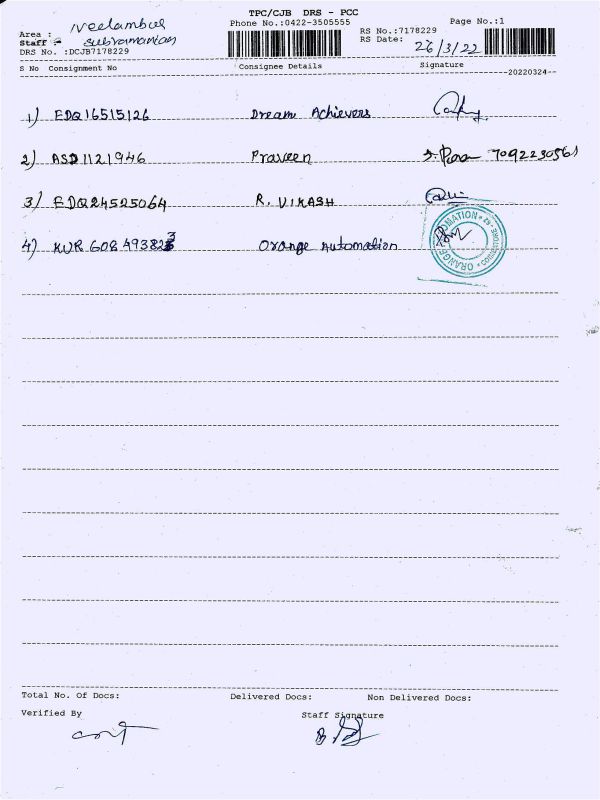 TPC/CJB DRS - PCC
Area : Neelambur
Phone No.:0422-3505555
Page No.:1
Staff : Subramanian
RS No.:7178229
DRS No. :DCJB7178229
RS Date: 26/3/22
S No Consignment No Consignee Details Signature
--20220324--
1) EDQ16515126 Dream Achievers
2) ASD1121946 Praveen 7092230561
3) EDQ24525064 R. VIKASH
4) Orange Automation
ORANGE AUTOMATION
COIMBATORE
Total No. Of Docs: Delivered Docs: Non Delivered Docs:
Verified By Staff Signature